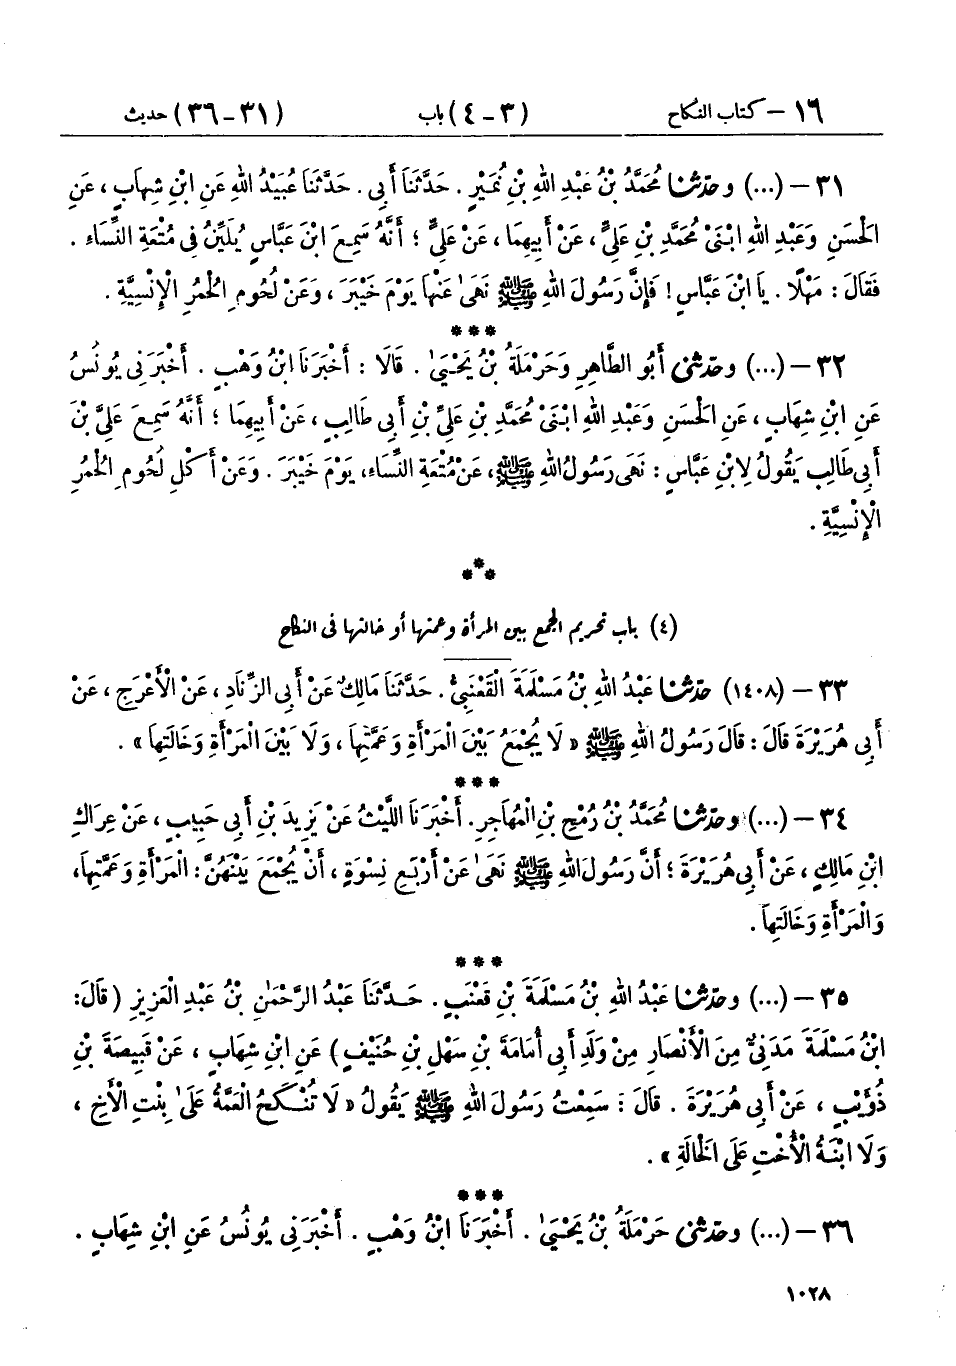 ١٦ – كتاب النكاح (٣ – ٤) باب (٣١ – ٣٦) حديث
٣١ – (...) وحَدَّثَنَا مُحَمَّدُ بْنُ عَبْدِ اللهِ بْنِ نُمَيْرٍ . حَدَّثَنَا أَبِى . حَدَّثَنَا عُبَيْدُ اللهِ عَنِ ابْنِ شِهَابٍ ، عَنِ
الْحَسَنِ وَعَبْدِ اللهِ ابْنَىْ مُحَمَّدِ بْنِ عَلِيٍّ ، عَنْ أَبِيهِمَا ، عَنْ عَلِيٍّ ؛ أَنَّهُ سَمِعَ ابْنَ عَبَّاسٍ يُلَيِّنُ فِى مُتْعَةِ النِّسَاءِ .
فَقَالَ : مَهْلًا . يَا ابْنَ عَبَّاسٍ ! فَإِنَّ رَسُولَ اللهِ ﷺ نَهَىٰ عَنْهَا يَوْمَ خَيْبَرَ ، وَعَنْ لُحُومِ الْحُمُرِ الْإِنْسِيَّةِ .
***
٣٢ – (...) وحَدَّثَنِى أَبُو الطَّاهِرِ وَحَرْمَلَةُ بْنُ يَحْيَىٰ . قَالَا : أَخْبَرَنَا ابْنُ وَهْبٍ . أَخْبَرَنِى يُونُسُ
عَنِ ابْنِ شِهَابٍ ، عَنِ الْحَسَنِ وَعَبْدِ اللهِ ابْنَىْ مُحَمَّدِ بْنِ عَلِيِّ بْنِ أَبِى طَالِبٍ ، عَنْ أَبِيهِمَا ؛ أَنَّهُ سَمِعَ عَلِيَّ بْنَ
أَبِى طَالِبٍ يَقُولُ لِابْنِ عَبَّاسٍ : نَهَى رَسُولُ اللهِ ﷺ ، عَنْ مُتْعَةِ النِّسَاءِ، يَوْمَ خَيْبَرَ . وَعَنْ أَكْلِ لُحُومِ الْحُمُرِ
الْإِنْسِيَّةِ .
***
(٤) باب تحريم الجمع بين المرأة وعمتها أو خالتها فى النكاح
٣٣ – (١٤٠٨) حَدَّثَنَا عَبْدُ اللهِ بْنُ مَسْلَمَةَ الْقَعْنَبِىُّ . حَدَّثَنَا مَالِكٌ عَنْ أَبِى الزِّنَادِ ، عَنْ الْأَعْرَجِ ، عَنْ
أَبِى هُرَيْرَةَ قَالَ : قَالَ رَسُولُ اللهِ ﷺ « لَا يُجْمَعُ بَيْنَ الْمَرْأَةِ وَعَمَّتِهَا ، وَلَا بَيْنَ الْمَرْأَةِ وَخَالَتِهَا » .
***
٣٤ – (...) وحَدَّثَنَا مُحَمَّدُ بْنُ رُمْحِ بْنِ الْمُهَاجِرِ. أَخْبَرَنَا اللَّيْثُ عَنْ يَزِيدَ بْنِ أَبِى حَبِيبٍ ، عَنْ عِرَاكِ
ابْنِ مَالِكٍ ، عَنْ أَبِى هُرَيْرَةَ ؛ أَنَّ رَسُولَ اللهِ ﷺ نَهَىٰ عَنْ أَرْبَعِ نِسْوَةٍ ، أَنْ يُجْمَعَ بَيْنَهُنَّ : الْمَرْأَةِ وَعَمَّتِهَا،
وَالْمَرْأَةِ وَخَالَتِهَا .
***
٣٥ – (...) وحَدَّثَنَا عَبْدُ اللهِ بْنُ مَسْلَمَةَ بْنِ قَعْنَبٍ . حَدَّثَنَا عَبْدُ الرَّحْمَٰنِ بْنُ عَبْدِ الْعَزِيزِ (قَالَ:
ابْنُ مَسْلَمَةَ مَدَنِىٌّ مِنَ الْأَنْصَارِ مِنْ وَلَدِ أَبِى أُمَامَةَ بْنِ سَهْلِ بْنِ حُنَيْفٍ) عَنِ ابْنِ شِهَابٍ ، عَنْ قَبِيصَةَ بْنِ
ذُؤَيْبٍ ، عَنْ أَبِى هُرَيْرَةَ . قَالَ : سَمِعْتُ رَسُولَ اللهِ ﷺ يَقُولُ « لَا تُنْكَحُ الْعَمَّةُ عَلَىٰ بِنْتِ الْأَخِ ،
وَلَا ابْنَةُ الْأُخْتِ عَلَى الْخَالَةِ » .
***
٣٦ – (...) وحَدَّثَنِى حَرْمَلَةُ بْنُ يَحْيَىٰ . أَخْبَرَنَا ابْنُ وَهْبٍ . أَخْبَرَنِى يُونُسُ عَنِ ابْنِ شِهَابٍ .
١٠٢٨